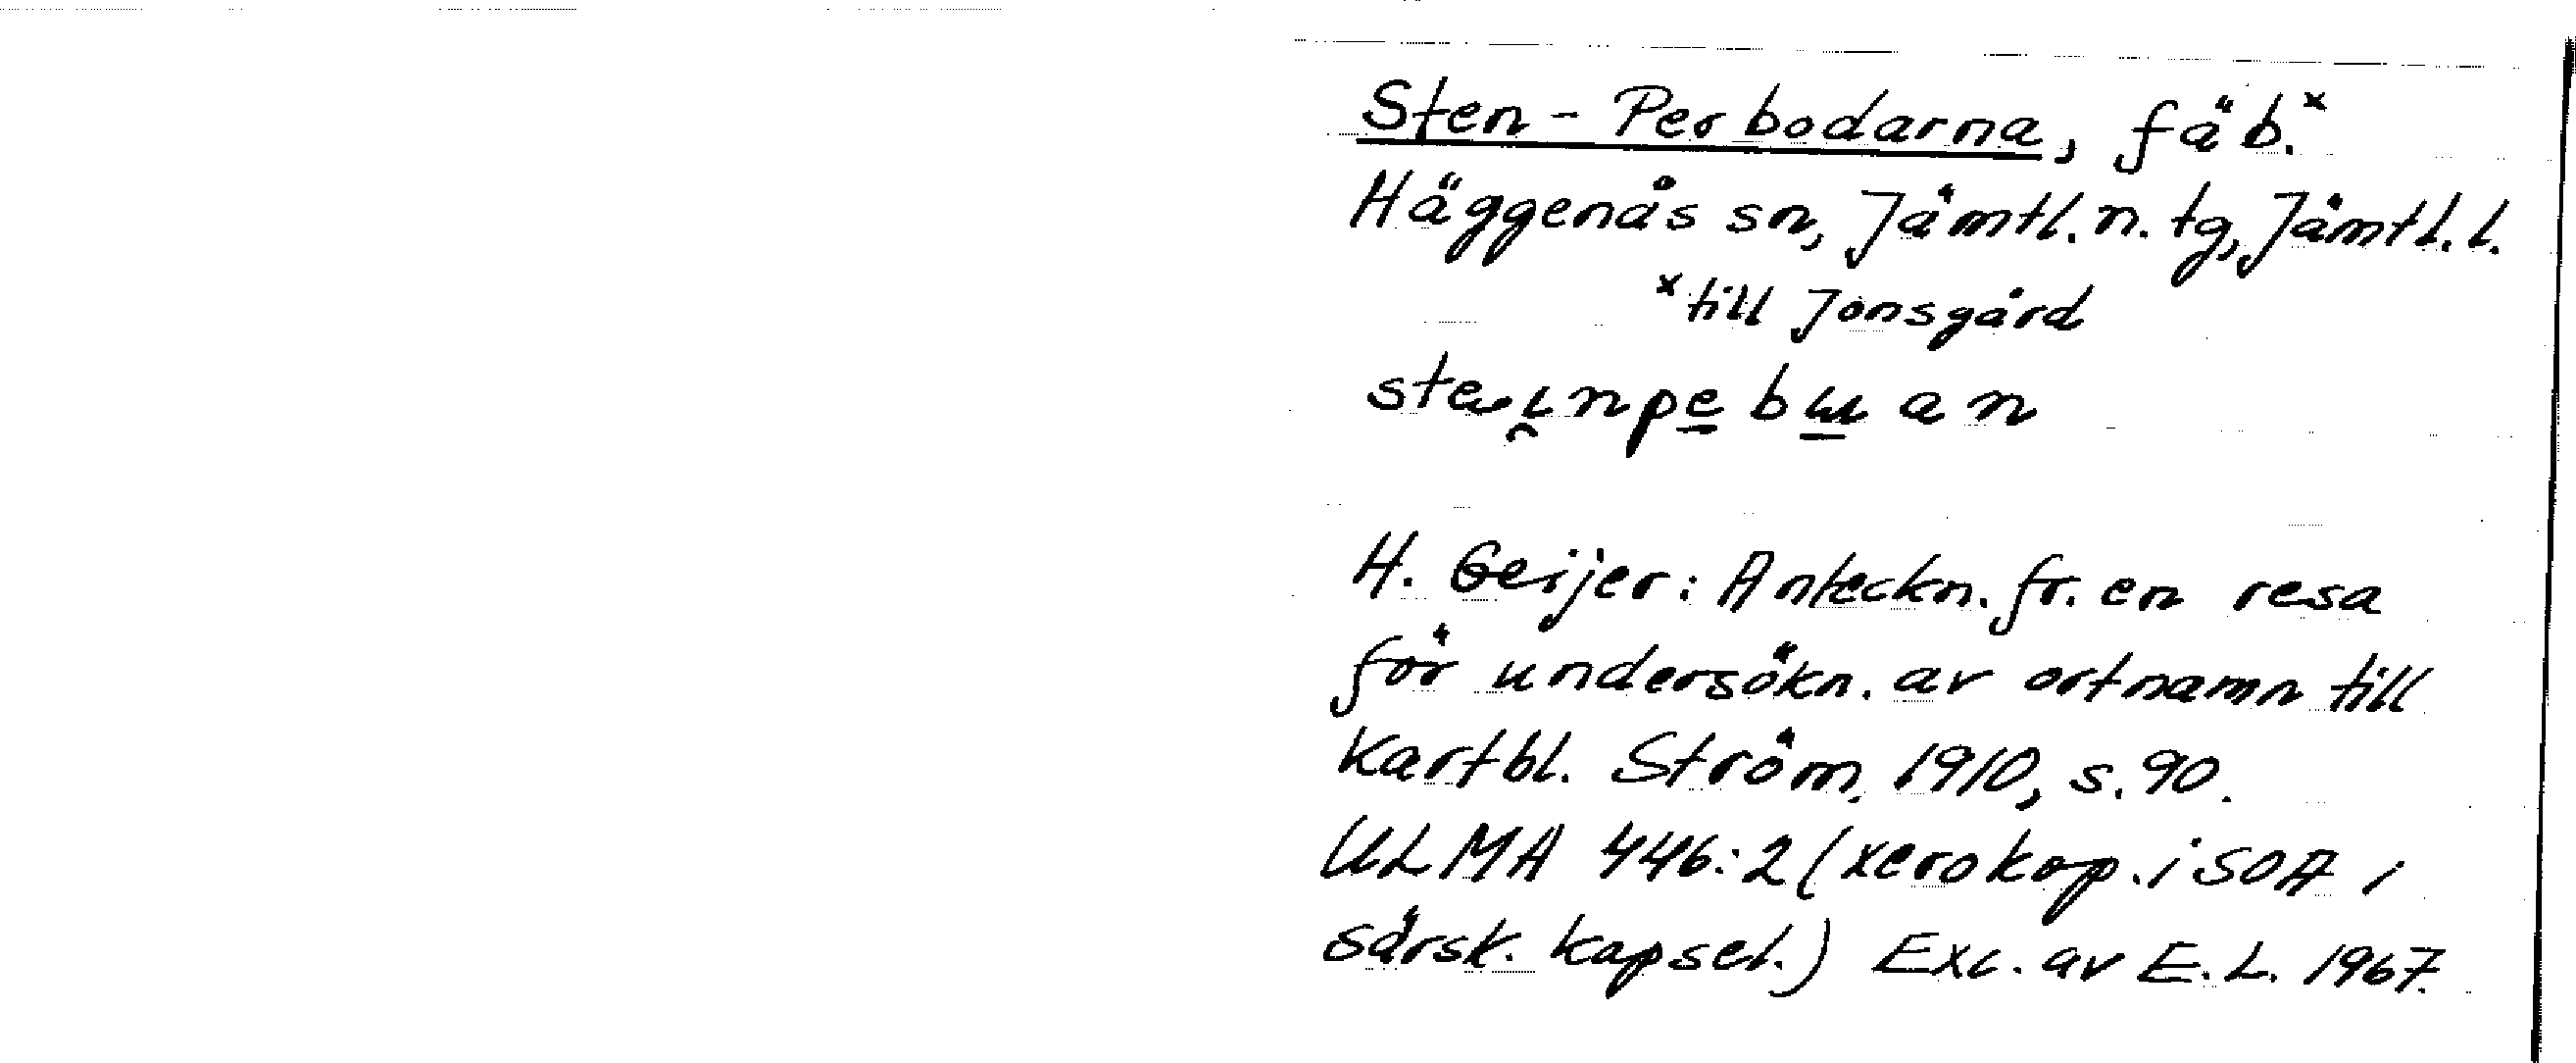 Sten-Perbodarna, fäb.ˣ
Häggenås sn, Jämtl. n. tg, Jämtl. l.
ˣ till Jonsgård
H. Geijer: Anteckn. fr. en resa
för undersökn. av ortnamn till
kartbl. Ström. 1910, s. 90.
ULMA 446:2 (xerokop. i SOA i
särsk. kapsel.) Exc. av E. L. 1967.